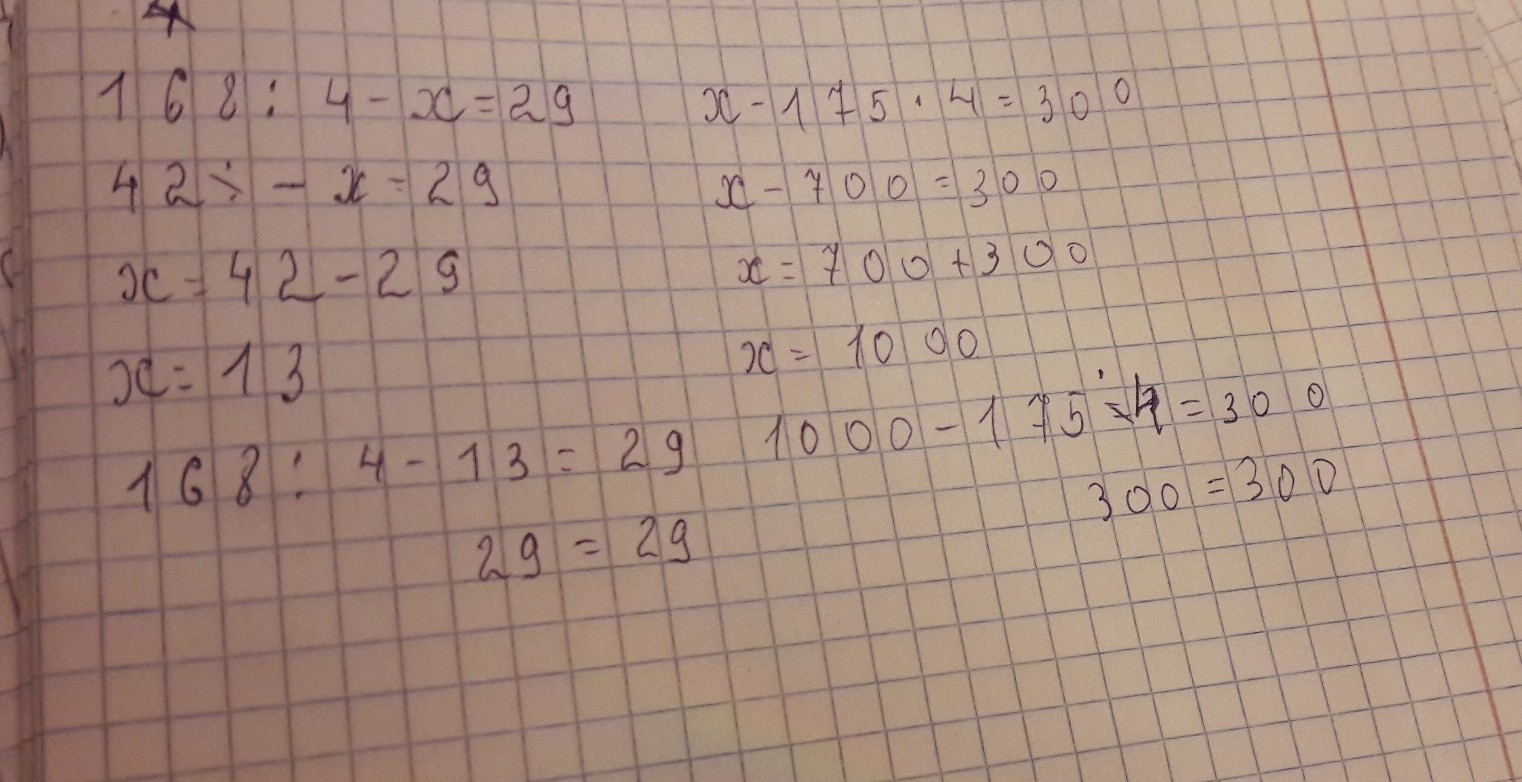 4
168 : 4 - x = 29
42 : - x = 29
x = 42 - 29
x = 13
168 : 4 - 13 = 29
29 = 29
x - 175 · 4 = 300
x - 700 = 300
x = 700 + 300
x = 1000
1000 - 175 · 4 = 300
300 = 300